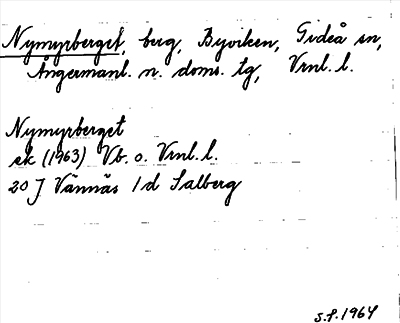 Nymyrberget, berg, Byviken, Gideå sn,
Ångermanl. n. doms. tg, Vrnl. l.
Nymyrberget
ek (1963) Vb. o. Vrnl. l.
20 J Vännäs 1d Salberg
S.F. 1964